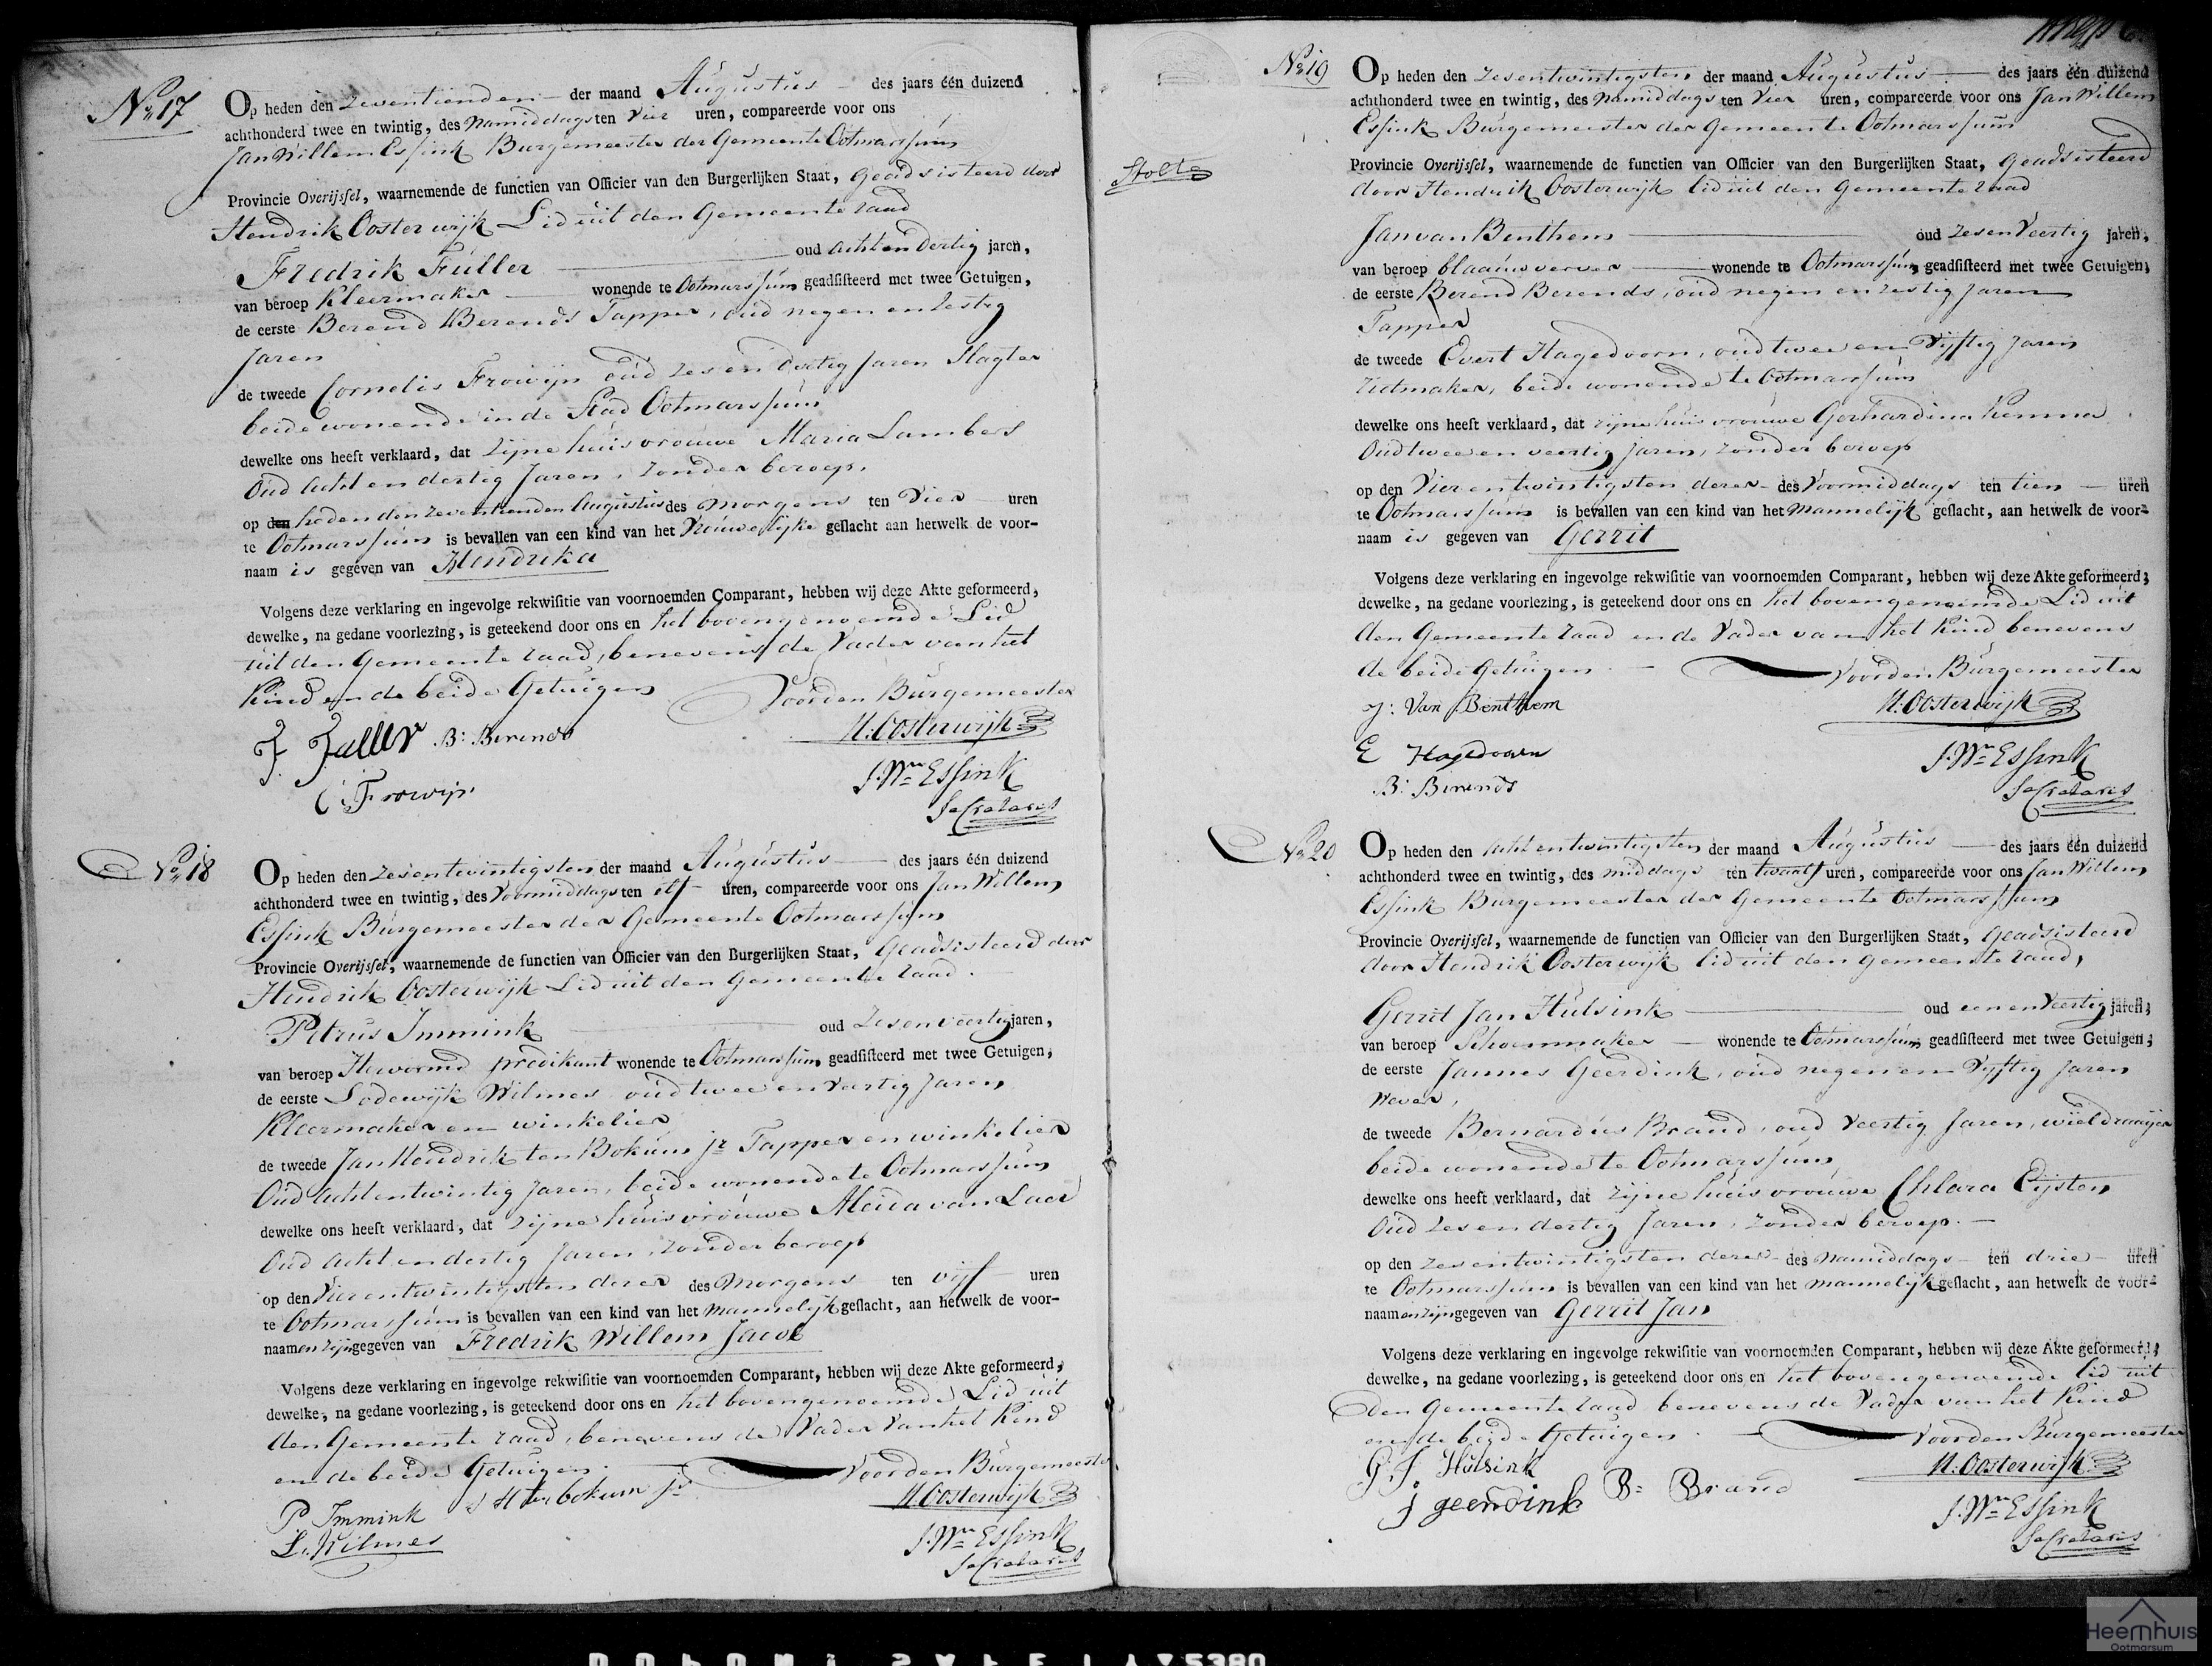 No 17
Op heden den zeventienden der maand Augustus des jaars één duizend
achthonderd twee en twintig, des namiddags ten vier uren, compareerde voor ons
Jan Willem Essink Burgemeester der Gemeente Ootmarssum
Provincie Overijssel, waarnemende de functien van Officier van den Burgerlijken Staat, geadsisteerd door
Hendrik Oosterwijk Lid uit den Gemeente raad
Fredrik Fuller oud acht en dertig jaren,
van beroep Kleermaker wonende te Ootmarssum geadsisteerd met twee Getuigen,
de eerste Berend Berends Tapper, oud negen en zestig
Jaren
de tweede Cornelis Frowijn oud zes en dertig Jaren Slagter
beide wonende in de Stad Ootmarssum
dewelke ons heeft verklaard, dat zijne huisvrouwe Maria Lambers
Oud acht en dertig Jaren, zonder beroep,
op den heden den zeventienden Augustus des morgens ten vier uren
te Ootmarssum is bevallen van een kind van het Vrouwelijke geslacht aan hetwelk de voor-
naam is gegeven van Hendrika
Volgens deze verklaring en ingevolge rekwisitie van voornoemden Comparant, hebben wij deze Akte geformeerd,
dewelke, na gedane voorlezing, is geteekend door ons en het bovengenoemde Lid
uit den Gemeente raad, benevens de Vader van het
Kind en de beide Getuigen Voor den Burgemeester
F. Fuller B: Berends H: Oosterwijk
C: Frowijn J. Wm Essink
Secretaris
No 18
Op heden den zesentwintigsten der maand Augustus des jaars één duizend
achthonderd twee en twintig, des voormiddags ten elf uren, compareerde voor ons Jan Willem
Essink Burgemeester der Gemeente Ootmarssum
Provincie Overijssel, waarnemende de functien van Officier van den Burgerlijken Staat, geadsisteerd door
Hendrik Oosterwijk Lid uit den Gemeente raad.
Petrus Immink oud zes en veertig jaren,
van beroep Hervormd predikant wonende te Ootmarssum geadsisteerd met twee Getuigen,
de eerste Lodewijk Wilmes oud twee en veertig Jaren
Kleermaker en winkelier
de tweede Jan Hendrik ten Bokum jr Tapper en winkelier
Oud acht en twintig Jaren, beide wonende te Ootmarssum
dewelke ons heeft verklaard, dat zijne huisvrouwe Aleida van Laer
Oud acht en dertig Jaren, zonder beroep
op den vier entwintigsten dezer des morgens ten vijf uren
te Ootmarssum is bevallen van een kind van het mannelijk geslacht, aan hetwelk de voor-
naamen zijn gegeven van Fredrik Willem Jacob
Volgens deze verklaring en ingevolge rekwisitie van voornoemden Comparant, hebben wij deze Akte geformeerd,
dewelke, na gedane voorlezing, is geteekend door ons en het bovengenoemde Lid uit
den Gemeente raad, benevens de Vader van het Kind
en de beide Getuigen. Voor den Burgemeester
P Immink J H ten bokum jr H: Oosterwijk
L. Wilmes J. Wm Essink
Secretaris
No 19
Op heden den zesentwintigsten der maand Augustus des jaars één duizend
achthonderd twee en twintig, des namiddags ten vier uren, compareerde voor ons Jan Willem
Essink Burgemeester der Gemeente Ootmarssum
Provincie Overijssel, waarnemende de functien van Officier van den Burgerlijken Staat, geadsisteerd
door Hendrik Oosterwijk lid uit den gemeente raad
Jan van Benthem oud zes en veertig jaren,
van beroep blaauwverver wonende te Ootmarssum geadsisteerd met twee Getuigen,
de eerste Berend Berends, oud negen en zestig Jaren
Tapper
de tweede Evert Hagedoorn, oud twee en vijftig Jaren
rietmaker, beide wonende te Ootmarssum
dewelke ons heeft verklaard, dat zijne huisvrouwe Gerhardina Kemna
Oud twee en veertig Jaren, zonder beroep
op den vier entwintigsten dezer des voormiddags ten tien uren
te Ootmarssum is bevallen van een kind van het mannelijk geslacht, aan hetwelk de voor-
naam is gegeven van Gerrit
Volgens deze verklaring en ingevolge rekwisitie van voornoemden Comparant, hebben wij deze Akte geformeerd,
dewelke, na gedane voorlezing, is geteekend door ons en het bovengenoemde Lid uit
den Gemeente raad en de Vader van het Kind benevens
de beide Getuigen. Voor den Burgemeester
J: Van Benthem H: Oosterwijk
E Hagedoorn J. Wm Essink
B: Berends Secretaris
No 20
Op heden den acht entwintigsten der maand Augustus des jaars één duizend
achthonderd twee en twintig, des middags ten twaalf uren, compareerde voor ons Jan Willem
Essink Burgemeester der Gemeente Ootmarssum
Provincie Overijssel, waarnemende de functien van Officier van den Burgerlijken Staat, geadsisteerd
door Hendrik Oosterwijk lid uit den gemeente raad,
Gerrit Jan Hulsink oud een en veertig jaren,
van beroep Schoenmaker wonende te Ootmarssum geadsisteerd met twee Getuigen,
de eerste Jannes Geerdink, oud negen en vijftig Jaren
Wever,
de tweede Bernardus Brand, oud veertig Jaren, wieldraaijer
beide wonende te Ootmarssum
dewelke ons heeft verklaard, dat zijne huisvrouwe Chlara Eijsten
Oud zes en dertig Jaren, zonder beroep.
op den zes entwintigsten dezer des namiddags ten drie uren
te Ootmarssum is bevallen van een kind van het mannelijk geslacht, aan hetwelk de voor-
naamen zijn gegeven van Gerrit Jan
Volgens deze verklaring en ingevolge rekwisitie van voornoemden Comparant, hebben wij deze Akte geformeerd,
dewelke, na gedane voorlezing, is geteekend door ons en het bovengenoemde lid uit
den Gemeente raad benevens de Vader van het Kind
en de beide Getuigen. Voor den Burgemeester
G. J. Hulsink H: Oosterwijk
J geerdink B: Brand
J. Wm Essink
Secretaris
Heemhuis
Ootmarsum